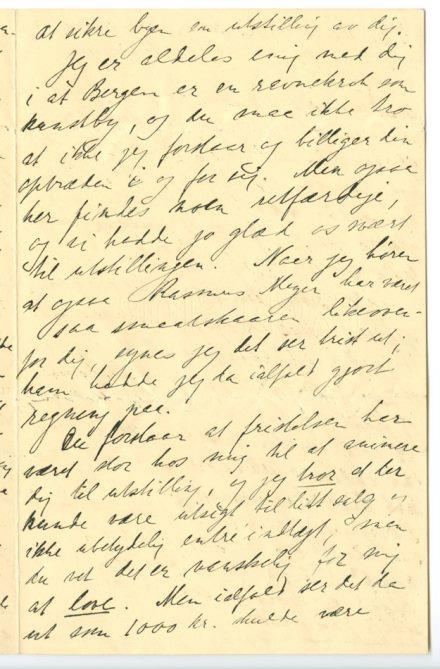 at sikre byen en utstilling av dig.
Jeg er aldeles enig med dig
i at Bergen er en revnekrok som
kunstby, og du maa ikke tro
at ikke jeg forstaar og billiger din
optræden i og for sig. Men ogsaa
her findes noen retfærdige,
og vi hadde jo glæd os svært
til utstillingen. Naar jeg hører
at ogsaa Rasmus Meyer har været
saa smaatskaaren likeover-
for dig, synes jeg det ser trist ut;
ham hadde jeg da ialfald gjort
regning paa.
Du forstaar at fristelsen har
været stor hos mig til at animere
dig til utstilling, og jeg tror at der
kunde være utsigt til litt salg og
ikke ubetydelig entré indtægt, men
du vet det er vanskelig for mig
at love. Men ialfald ser det da
ut som 1000 kr. skulde være